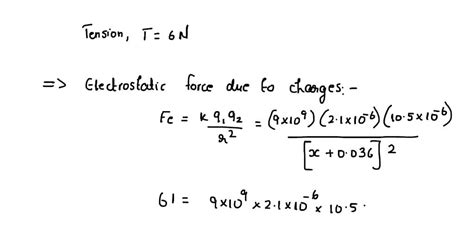 Tension, T = 6N
=> Electrostatic force due to charges:-
Fe = k q1 q2 / r^2 = (9x10^9)(2.1x10^-6)(10.5x10^-6) / [x+0.036]^2
61 = 9x10^9 x 2.1x10^-6 x 10.5.